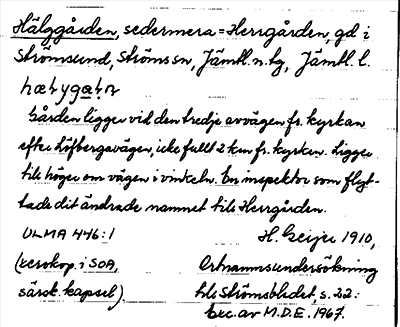 Hälggården, sedermera = Herrgården, gd i
Strömsund, Ströms sn, Jämtl. n. tg, Jämtl. l.
Gården ligger vid den tredje avvägen fr. kyrkan
efter Löfbergavägen, icke fullt 2 km fr. kyrkan. Ligger
till höger om vägen i vinkeln. En inspektor som flyt-
tade dit ändrade namnet till Herrgården.
ULMA 446:1 H. Geijer 1910,
(xerokop. i SOA, Ortnamnsundersökning
särsk. kapsel). till Strömsbladet, s. 22.
Exc. av M.D.E. 1967.